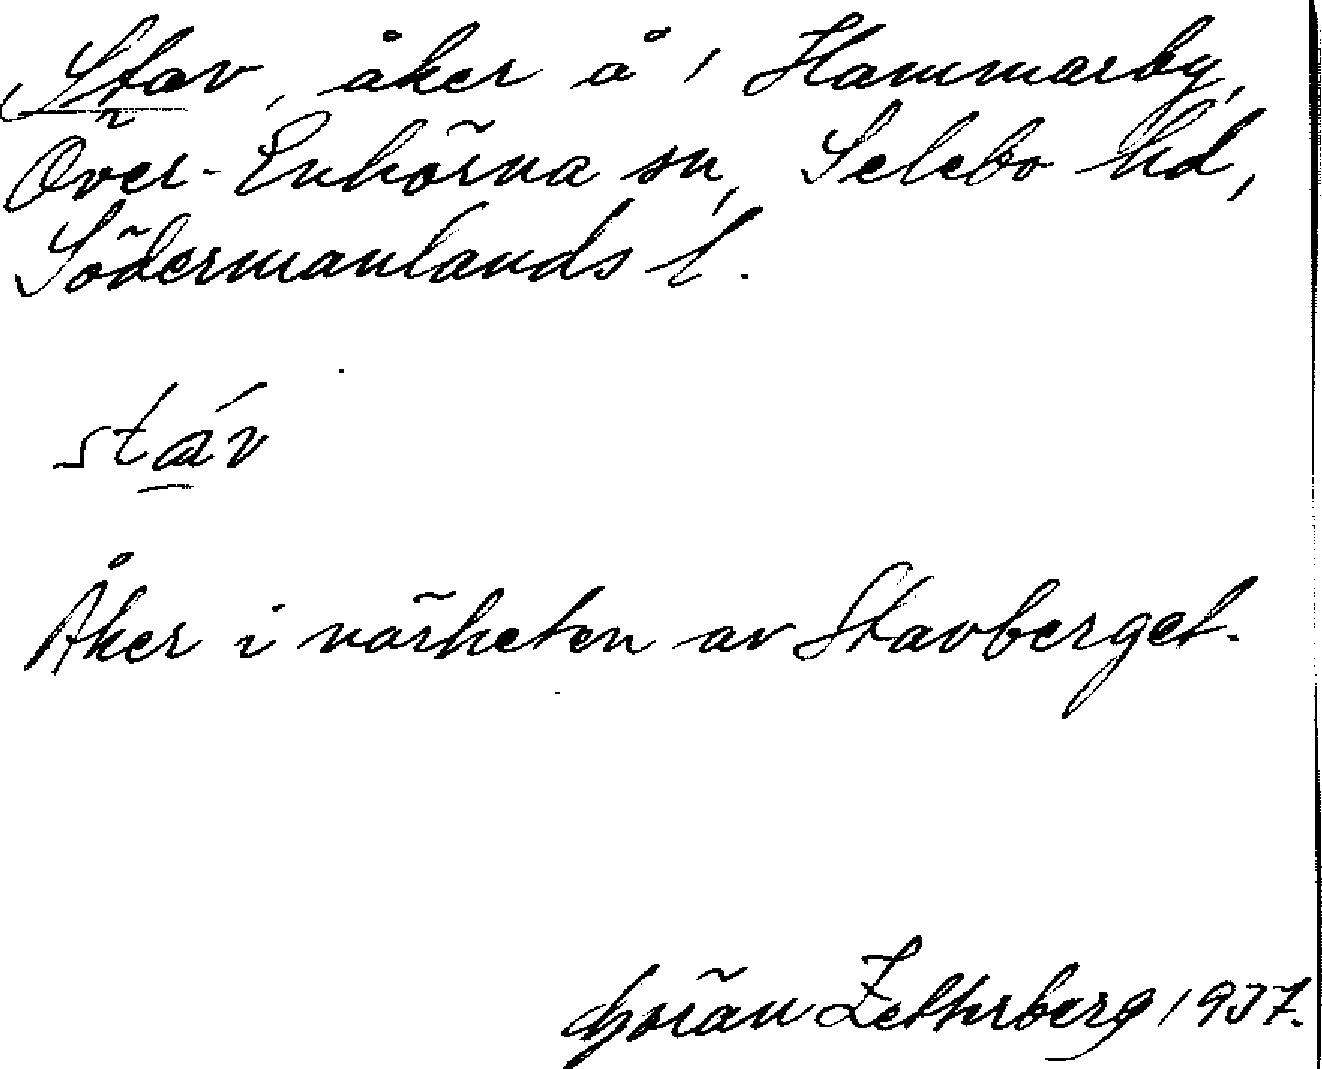 Stav, åker å 1 Hammarby,
Över-Enhörna sn, Selebo hd,
Södermanlands l.
stáv
Åker i närheten av Stavberget.
Göran Zetterberg 1937.